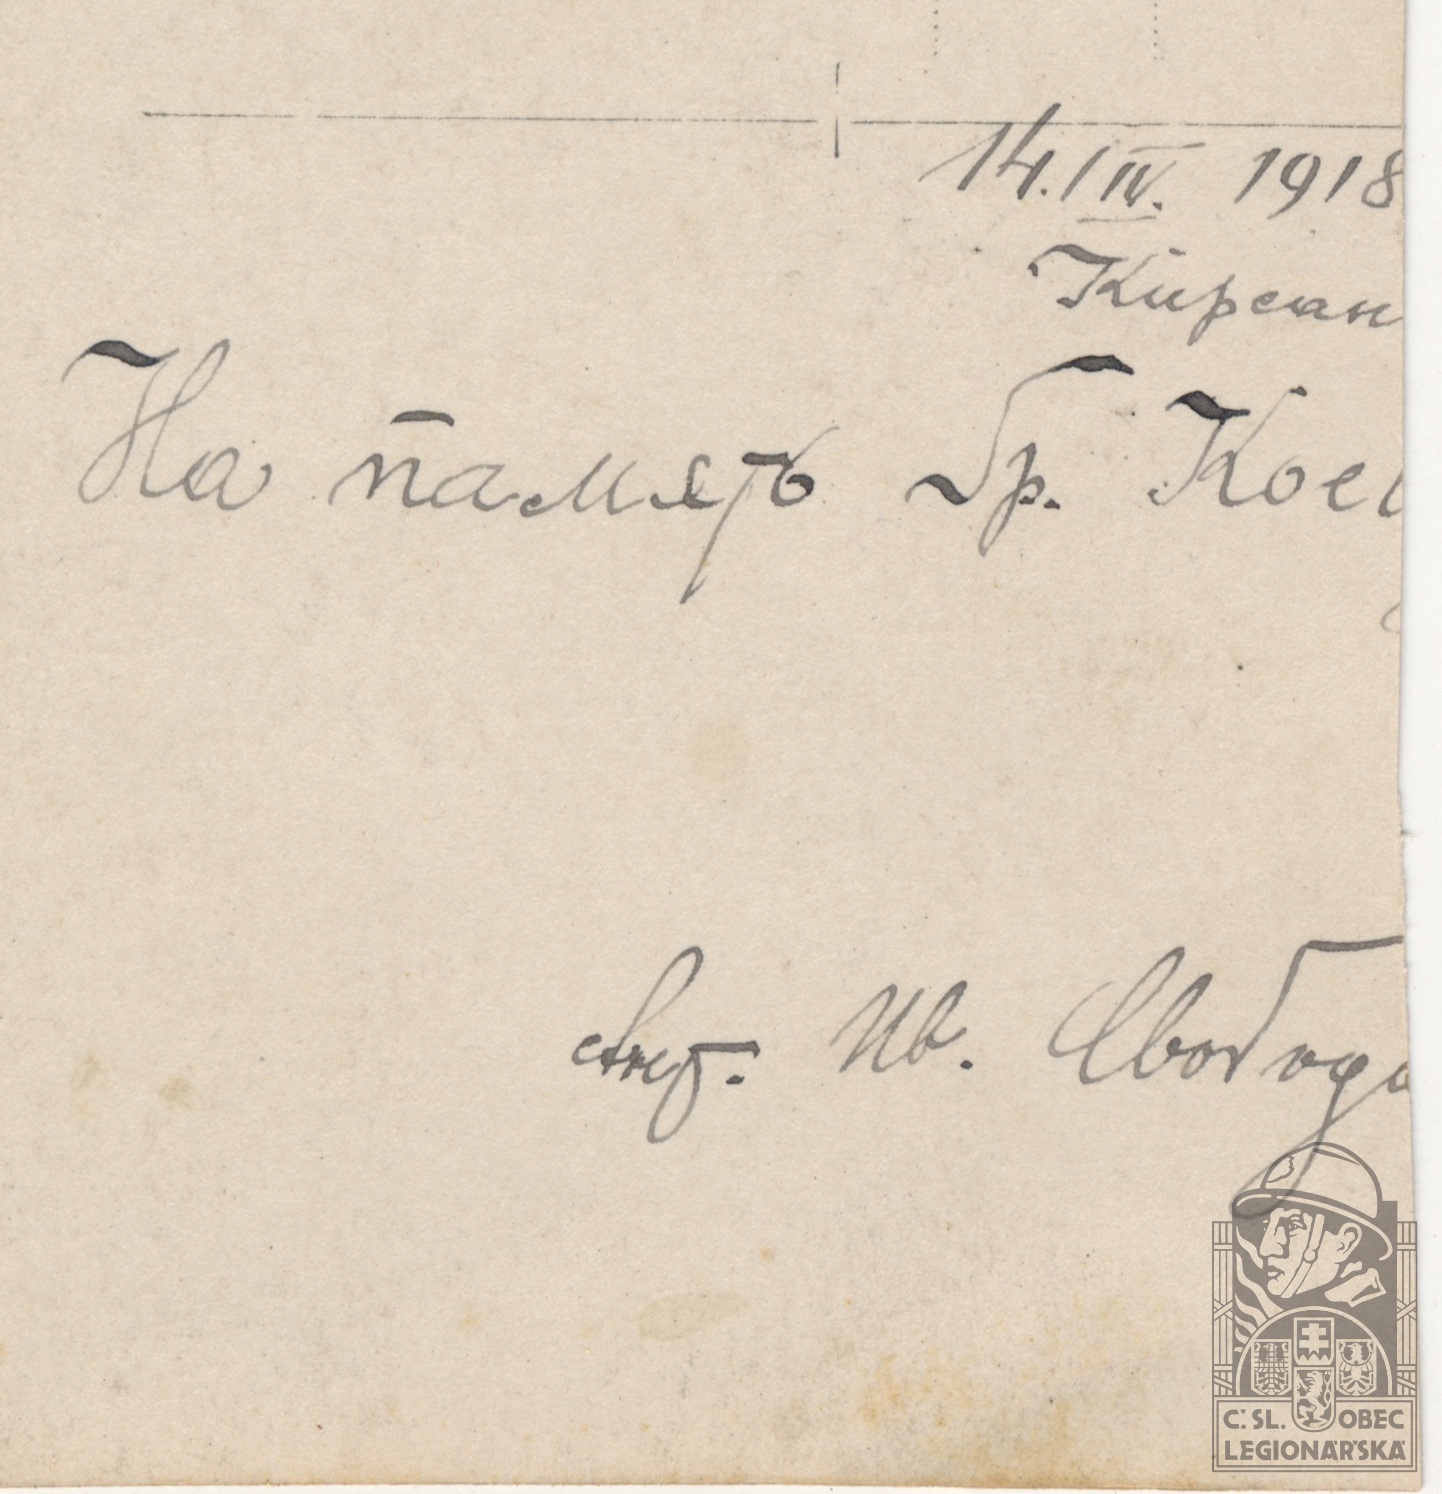 14. IV. 1918
Кирсан
На память бр. Кое
Ив. Свобода
Č. SL. OBEC
LEGIONÁŘSKÁ